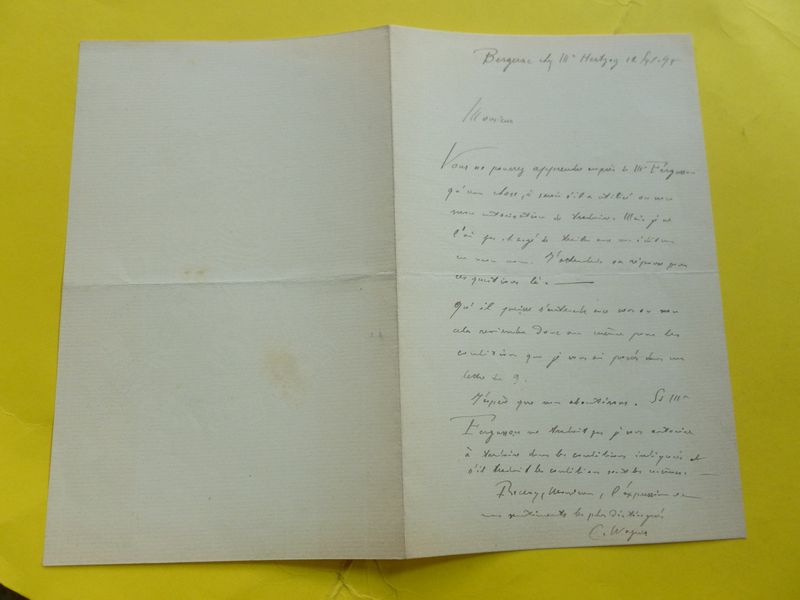 Bergerac chez Mr Hertzog 12
Monsieur
Vous ne pouvez apprendre auprès de Mr Ferguson
qu'une chose, à savoir s'il a utilisé ou non
mon autorisation de traduire. Mais je ne
l'ai pas chargé de traiter avec
en mon nom. J'attendais sa réponse pour
ces questions là. —
Qu'il puisse s'entendre avec vous ou non
cela reviendra donc au même pour les
conditions que je vous ai posées dans ma
lettre du 9.
J'espère que nous aboutirons. Si Mr
Ferguson ne traduit pas je vous autorise
à traduire dans les conditions indiquées et
s'il traduit les conditions sont les mêmes. —
Recevez, Monsieur, l'expression de
mes sentiments les plus distingués
C. Wagner